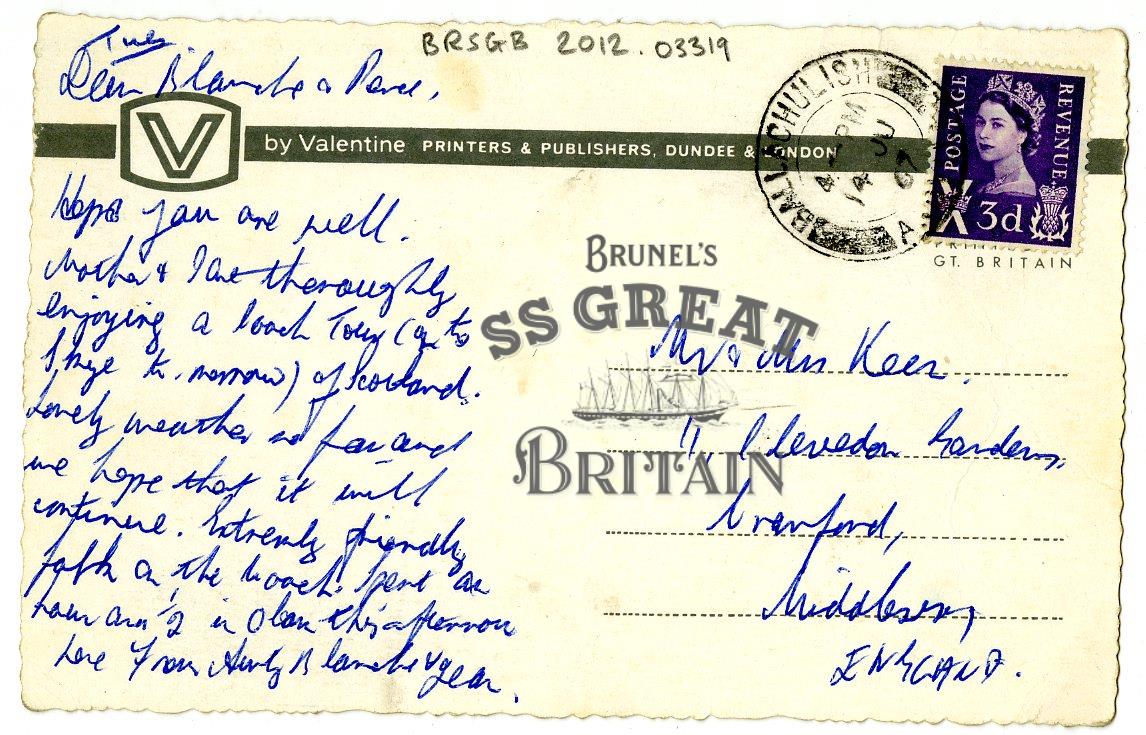 BRSGB 2012.03319
Tues.
Dear Blanche & Perce,
V by Valentine PRINTERS & PUBLISHERS, DUNDEE & LONDON
BALLACHULISH
4 PM
14 JU
67
A
POSTAGE REVENUE
3d
GT. BRITAIN
Hope you are well.
Mother & I are thoroughly
enjoying a Coach Tour (go to
Skye to-morrow) of Scotland.
Lovely weather so far and
we hope that it will
continue. Extremely friendly
folk on the coach. Spent an
hour and ½ in Oban this afternoon
Love from Aunty Blanche &
BRUNEL'S
SS GREAT
BRITAIN
Mr & Mrs Keen.
11, Clevedon Gardens,
Cranford,
Middlesex,
ENGLAND.